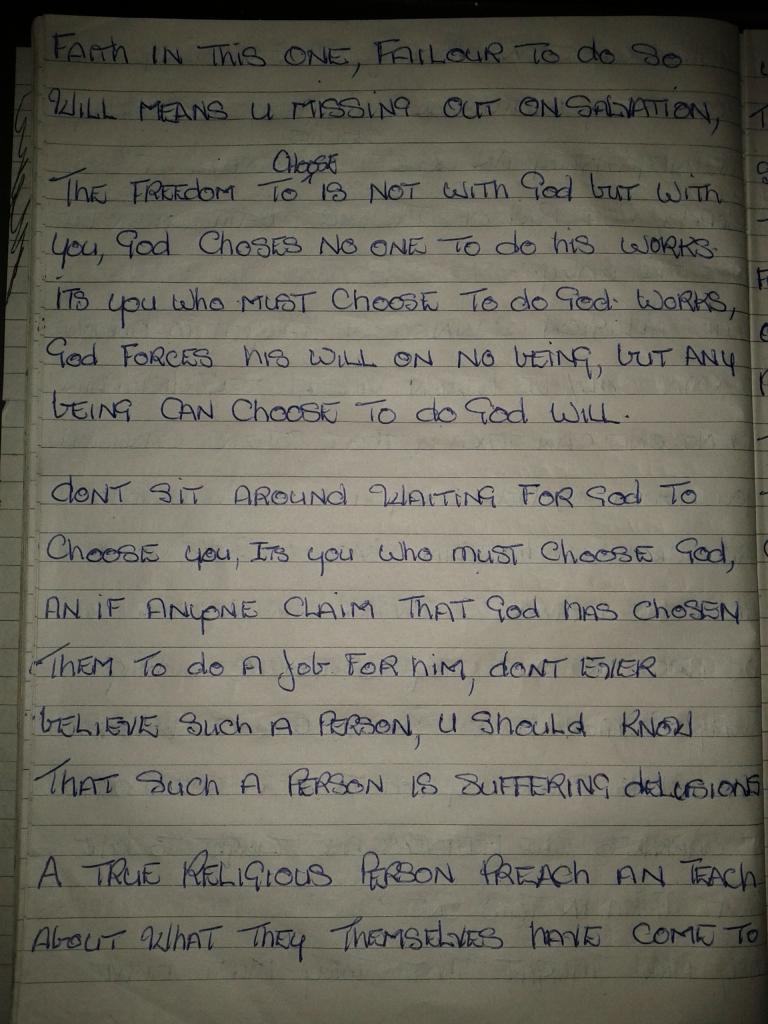 FAITH IN THIS ONE, FAILOUR TO do SO
WILL MEANS U MISSING OUT ON SALVATION,
CHOOSE
THE FREEDOM TO IS NOT WITH God bUT WITH
you, God CHOSES NO ONE TO do his WORKS.
ITS you who MUST CHOOSE TO do God WORKS,
God FORCES his WILL ON NO bEING, bUT ANY
bEING CAN CHOOSE TO do God WILL.
dONT SIT AROUND WAITING FOR God TO
CHOOSE you, ITS you who MUST CHOOSE God,
AN iF ANyONE CLAIM THAT God HAS CHOSEN
THEM TO do A job FOR him, dONT EVER
bELIEVE Such A PERSON, U Should KNOW
THAT Such A PERSON IS SUFFERING dELUSIONS
A TRUE RELIGIOUS PERSON PREACh AN TEACh
AbOUT WhAT THEy THEMSELVES hAVE COME TO